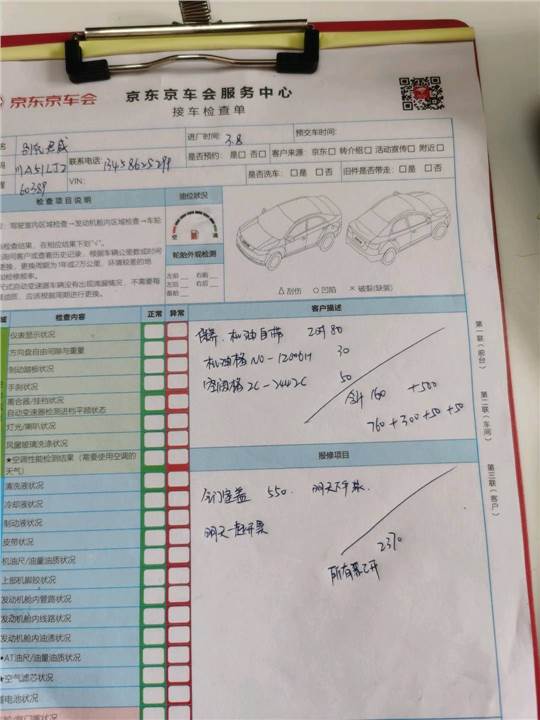 京东京车会
京东京车会服务中心
接车检查单
进厂时间: 3.8
预交车时间:
联系电话: 13458625299
是否预约: 是□ 否□
客户来源: 京东□ 转介绍□ 活动宣传□ 附近□
60389
VIN:
是否洗车: 是□ 否□
旧件是否带走: 是□ 否□
检查项目说明
油位状况
空
满
轮胎外观检测
左前
右前
左后
右后
备胎
△刮伤 ○凹陷 ×破裂(缺装)
检查内容
正常
异常
客户描述
仪表显示状况
方向盘自由间隙与重量
制动踏板状况
手刹状况
离合器/挂档状况
自动变速器检测进档平顺状态
灯光/喇叭状况
风窗玻璃洗涤状况
★空调性能检测结果(需要使用空调的
天气)
清洗液状况
冷却液状况
制动液状况
皮带状况
机油尺/油量油质状况
上部机脚胶状况
发动机舱内管路状况
发动机舱内线路状况
发动机舱内油渍状况
★AT油尺/油量油质状况
★空气滤芯状况
保养. 机油自带 工时 80
机油格 30
空调格 50
合计 160 +500
760+300+50+50
报修项目
550. 明天下午来.
明天一起开票
2310
所有票已开
第一联(前台)
第二联(车间)
第三联(客户)